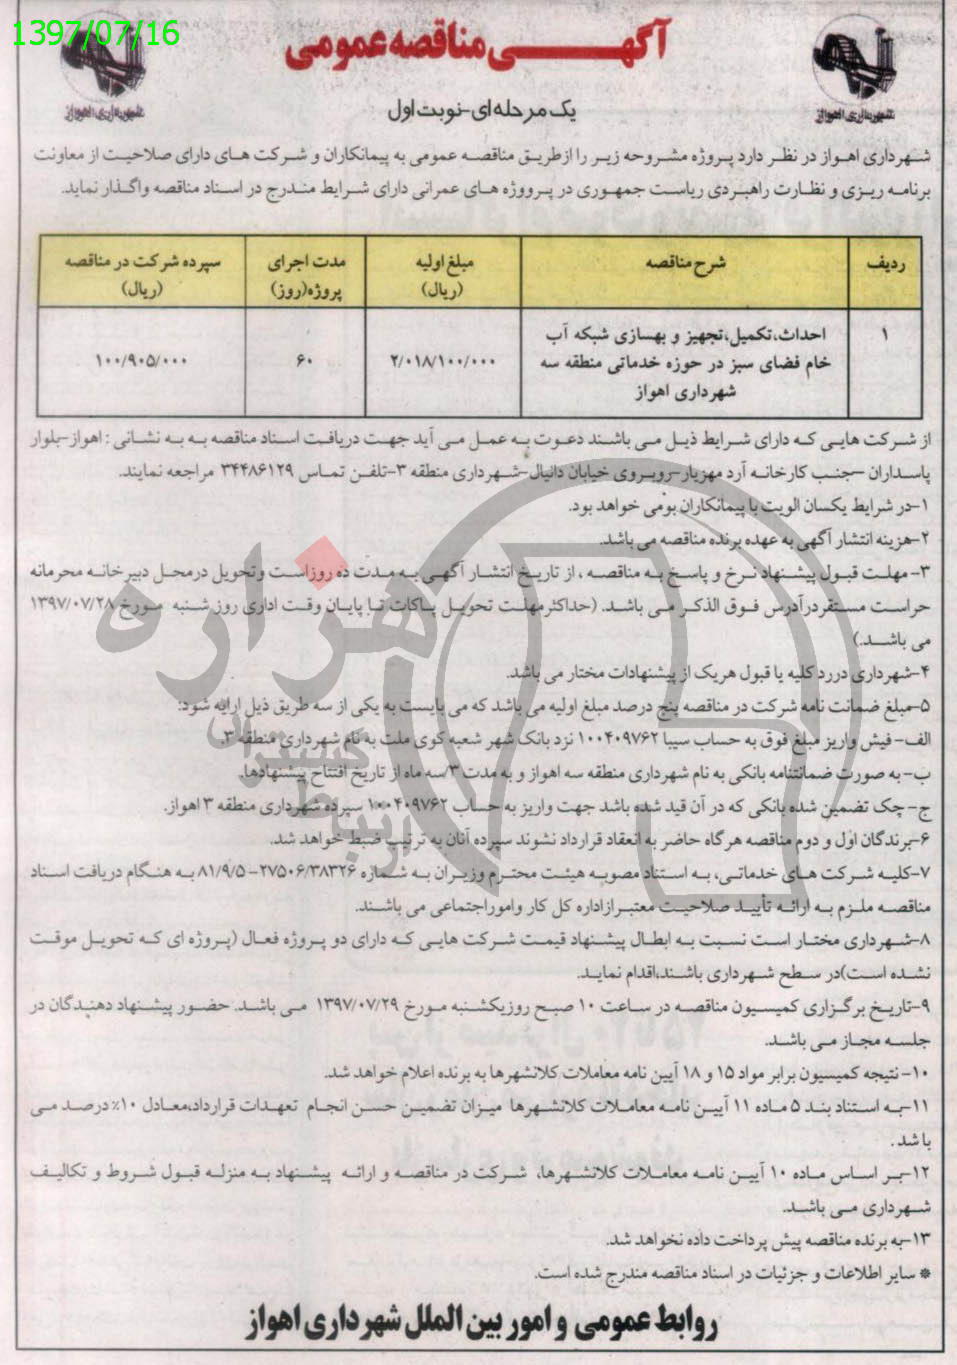 1397/07/16
آگهی مناقصه عمومی
شهرداری اهواز
شهرداری اهواز
یک مرحله ای-نوبت اول
شهرداری اهواز در نظر دارد پروژه مشروحه زیر را ازطریق مناقصه عمومی به پیمانکاران و شرکت های دارای صلاحیت از معاونت
برنامه ریزی و نظارت راهبردی ریاست جمهوری در پرووژه های عمرانی دارای شرایط مندرج در اسناد مناقصه واگذار نماید.
ردیف
شرح مناقصه
مبلغ اولیه
(ریال)
مدت اجرای
پروژه(روز)
سپرده شرکت در مناقصه
(ریال)
۱
احداث،تکمیل،تجهیز و بهسازی شبکه آب
خام فضای سبز در حوزه خدماتی منطقه سه
شهرداری اهواز
۲/۰۱۸/۱۰۰/۰۰۰
۶۰
۱۰۰/۹۰۵/۰۰۰
از شرکت هایی که دارای شرایط ذیل می باشند دعوت به عمل می آید جهت دریافت اسناد مناقصه به به نشانی : اهواز-بلوار
پاسداران -جنب کارخانه آرد مهزیار-روبروی خیابان دانیال-شهرداری منطقه ۳-تلفن تماس ۳۴۴۸۶۱۲۹ مراجعه نمایند.
۱-در شرایط یکسان الویت با پیمانکاران بومی خواهد بود.
۲-هزینه انتشار آگهی به عهده برنده مناقصه می باشد.
۳- مهلت قبول پیشنهاد نرخ و پاسخ به مناقصه ، از تاریخ انتشار آگهی به مدت ده روزاست وتحویل درمحل دبیرخانه محرمانه
حراست مستقردرآدرس فوق الذکر می باشد. (حداکثرمهلت تحویل پاکات تا پایان وقت اداری روز شنبه مورخ ۱۳۹۷/۰۷/۲۸
می باشد.)
۴-شهرداری دررد کلیه یا قبول هریک از پیشنهادات مختار می باشد.
۵-مبلغ ضمانت نامه شرکت در مناقصه پنج درصد مبلغ اولیه می باشد که می بایست به یکی از سه طریق ذیل ارائه شود:
الف- فیش واریز مبلغ فوق به حساب سیبا ۱۰۰۴۰۹۷۶۲ نزد بانک شهر شعبه کوی ملت به نام شهرداری منطقه ۳.
ب- به صورت ضمانتنامه بانکی به نام شهرداری منطقه سه اهواز و به مدت ۳/سه ماه از تاریخ افتتاح پیشنهادها.
ج- چک تضمین شده بانکی که در آن قید شده باشد جهت واریز به حساب ۱۰۰۴۰۹۷۶۲ سپرده شهرداری منطقه ۳ اهواز.
۶-برندگان اول و دوم مناقصه هرگاه حاضر به انعقاد قرارداد نشوند سپرده آنان به ترتیب ضبط خواهد شد.
۷-کلیه شرکت های خدماتی، به استناد مصوبه هیئت محترم وزیران به شماره ۲۷۵۰۶/۳۸۳۲۶- ۸۱/۹/۵ به هنگام دریافت اسناد
مناقصه ملزم به ارائه تأیید صلاحیت معتبرازاداره کل کار واموراجتماعی می باشند.
۸-شهرداری مختار است نسبت به ابطال پیشنهاد قیمت شرکت هایی که دارای دو پروژه فعال (پروژه ای که تحویل موقت
نشده است)در سطح شهرداری باشند،اقدام نماید.
۹-تاریخ برگزاری کمیسیون مناقصه در ساعت ۱۰ صبح روزیکشنبه مورخ ۱۳۹۷/۰۷/۲۹ می باشد. حضور پیشنهاد دهندگان در
جلسه مجاز می باشد.
۱۰- نتیجه کمیسیون برابر مواد ۱۵ و ۱۸ آیین نامه معاملات کلانشهرها به برنده اعلام خواهد شد.
۱۱-به استناد بند ۵ ماده ۱۱ آیین نامه معاملات کلانشهرها میزان تضمین حسن انجام تعهدات قرارداد،معادل ۱۰٪ درصد می
باشد.
۱۲-بر اساس ماده ۱۰ آیین نامه معاملات کلانشهرها، شرکت در مناقصه و ارائه پیشنهاد به منزله قبول شروط و تکالیف
شهرداری می باشد.
۱۳-به برنده مناقصه پیش پرداخت داده نخواهد شد.
* سایر اطلاعات و جزئیات در اسناد مناقصه مندرج شده است.
روابط عمومی و امور بین الملل شهرداری اهواز
هزاره